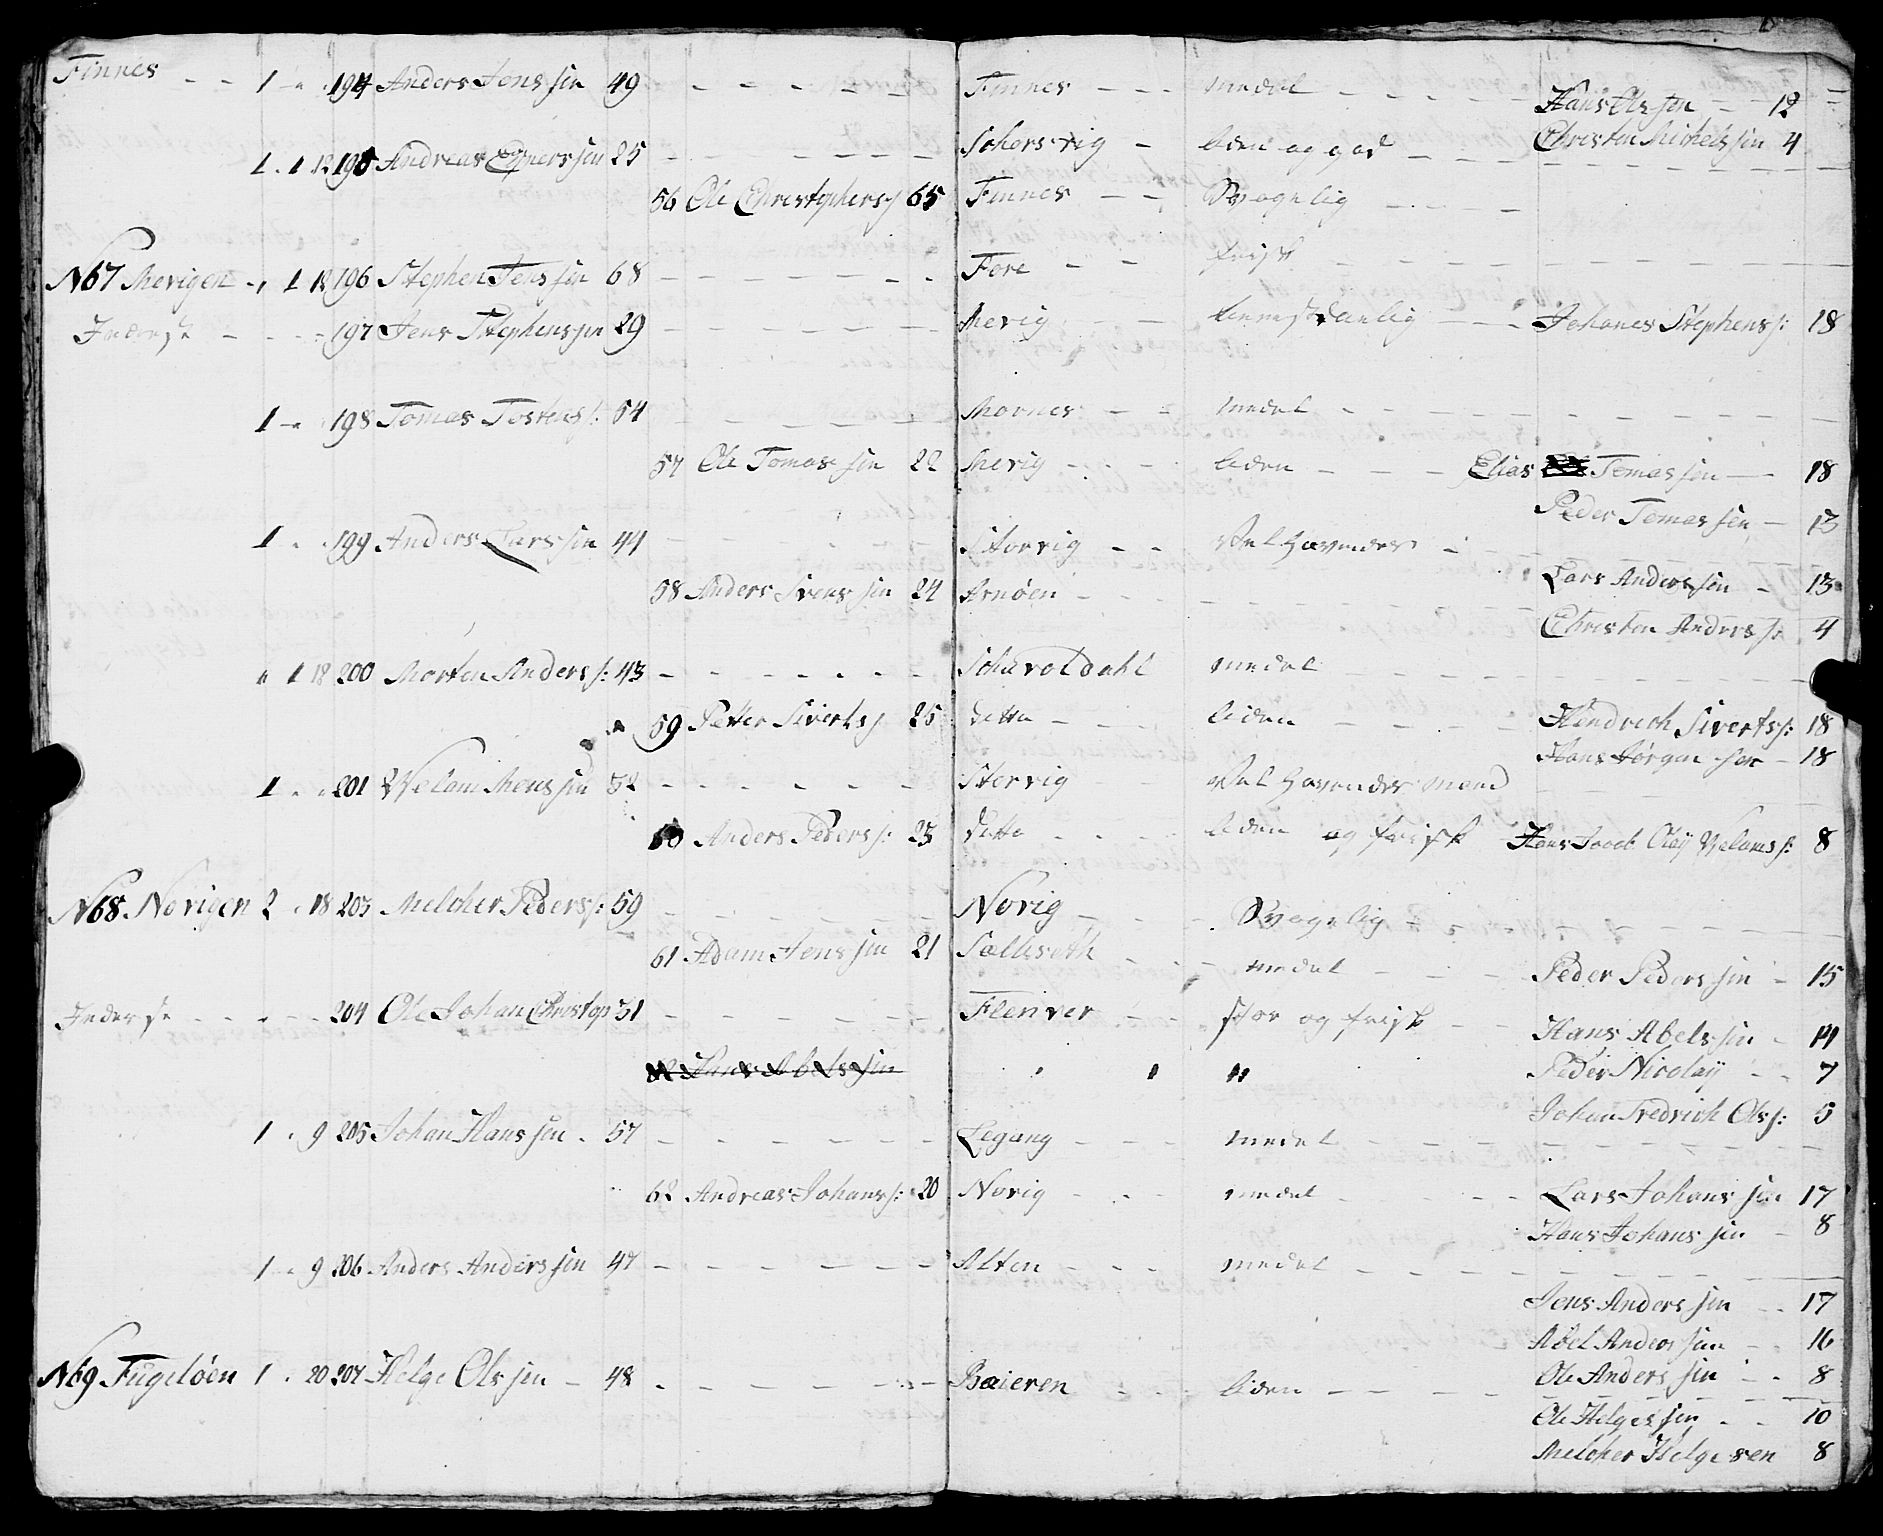 Finnes - - 1 - " 194 Anders Jenssøn 49 - - - - - - Finnes - - - medel - - - - - Hans Olssøn - - 12
1 . 1 12 195 Andreas Ejnerssøn 25 - - - - - - Schersvig - liden og god - - - Christen Michelssøn 4
56 Ole Christophers: 65 Finnes - - Svagelig - - - -
N67 Mevigen - " 1 12 196 Stephen Jenssøn 68 - - - - - - Fore - - frisk - - - - - -
Inderste - - - - 197 Jens Stephenssøn 29 - - - - - - Mevig - - - Johanes Stephens: 18
1 - " 198 Tomas Tostens: 54 - - - - - - Mornes - - medel - - - - - -
57 Ole Tomassøn 22 Mevig - - - liden - - - Elias Tomassøn - 18
Peder Tomassøn - 13
1 . . 199 Anders Larssøn 44 - - - - - - Storvig - - Vel Havendes -
58 Anders Svenssøn 24 Arnøen - - - - - - Lars Anderssøn - 13
Christen Anders: 4
" 1 18 200 Morten Anders: 43 - - - - - - Scharoldahl medel - - - - - -
59 Petter Siverts: 25 ditto - - - liden - - - Hendrech Siverts: 18
Hans Jørgensen - 18
1 . " 201 Velom Menssøn 52 - - - - - - Storvig - - Vel Havendes Mand
60 Anders Peders: 25 ditto - - - - liden og frisk Hans Jacob Olaÿ Veloms: 8
N68 Norigen 2 . 18 203 Melcher Peders: 59 - - - - - - Norig - - - Svagelig - - - -
61 Adam Jenssøn 21 Sælleseth - - - medel - - - Peder Pederssøn - 15
Inderste - - - - 204 Ole Johan Christop 31 - - - - - - Flenver - - stor og frisk - - Hans Abelssøn - 14
Peder Nicolaÿ - - 7
Johan Fredrich Ols: 5
1 . 9 205 Johan Hanssøn . 57 - - - - - - Legang - - - medel - - - - - -
62 Andreas Johans: 20 Norig - - - medel - - - Lars Johanssøn 17
Hans Johanssøn - 8
1 - 9 206 Anders Anderssøn 47 - - - - - - Alten - - - medel - - - - - -
Jens Anderssøn - - 17
Abel Anderssøn - - 16
N69 Fugeløen 1 . 20 207 Helge Olssøn - 48 - - - - - - Baieren - - - liden - - - - Ole Anderssøn - - 8
Ole Helgessøn - - 10
Melcher Helgesen 8